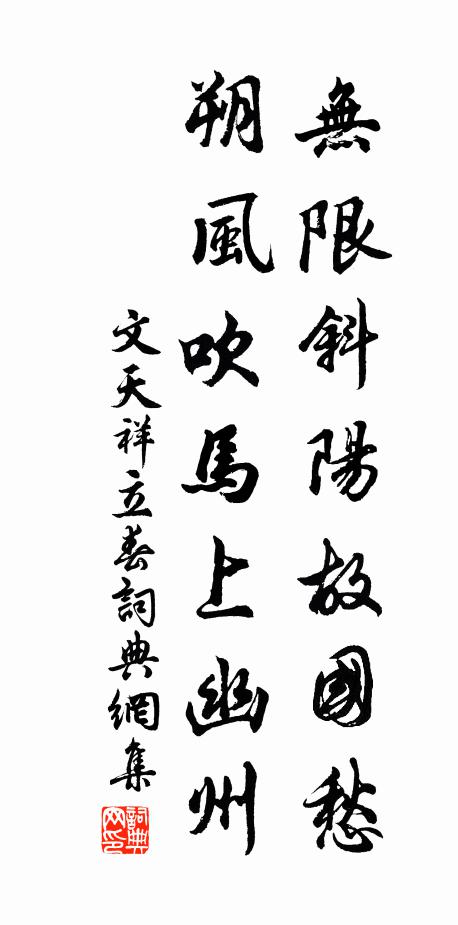 無限斜陽故國愁
朔風吹馬上幽州
文天祥立春詞典網集
詞典網印